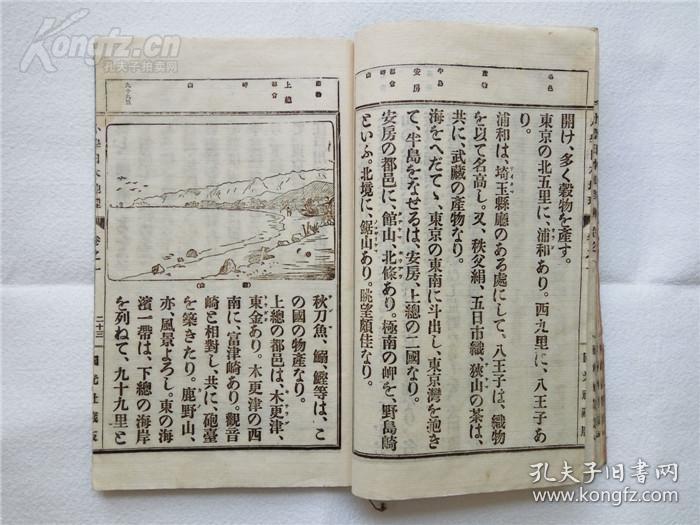 開け、多く穀物を產す。
東京の北五里に、浦和あり。西九里に、八王子あ
り。
浦和は、埼玉縣廳のある處にして、八王子は、織物
を以て名高し。又、秩父絹、五日市織、狹山の茶は、
共に、武藏の產物なり。
海をへだてゝ、東京の東南に斗出し、東京灣を抱き
て、半島をなせるは、安房、上總の二國なり。
安房の都邑に、館山、北條あり。極南の岬を、野島崎
といふ。北境に、鋸山あり。眺望頗佳なり。
安房
上總
秋刀魚、鰯、鰹等は、こ
の國の物產なり。
上總の都邑は、木更津、
東金あり。木更津の西
南に、富津崎あり。觀音
崎と相對し、共に、砲臺
を築きたり。鹿野山、
亦、風景よろし。東の海
濱一帶は、下總の海岸
を列ねて、九十九里と
卷之一
二十三
Kongfz.com
孔夫子拍卖网
孔夫子旧书网
www.kongfz.com